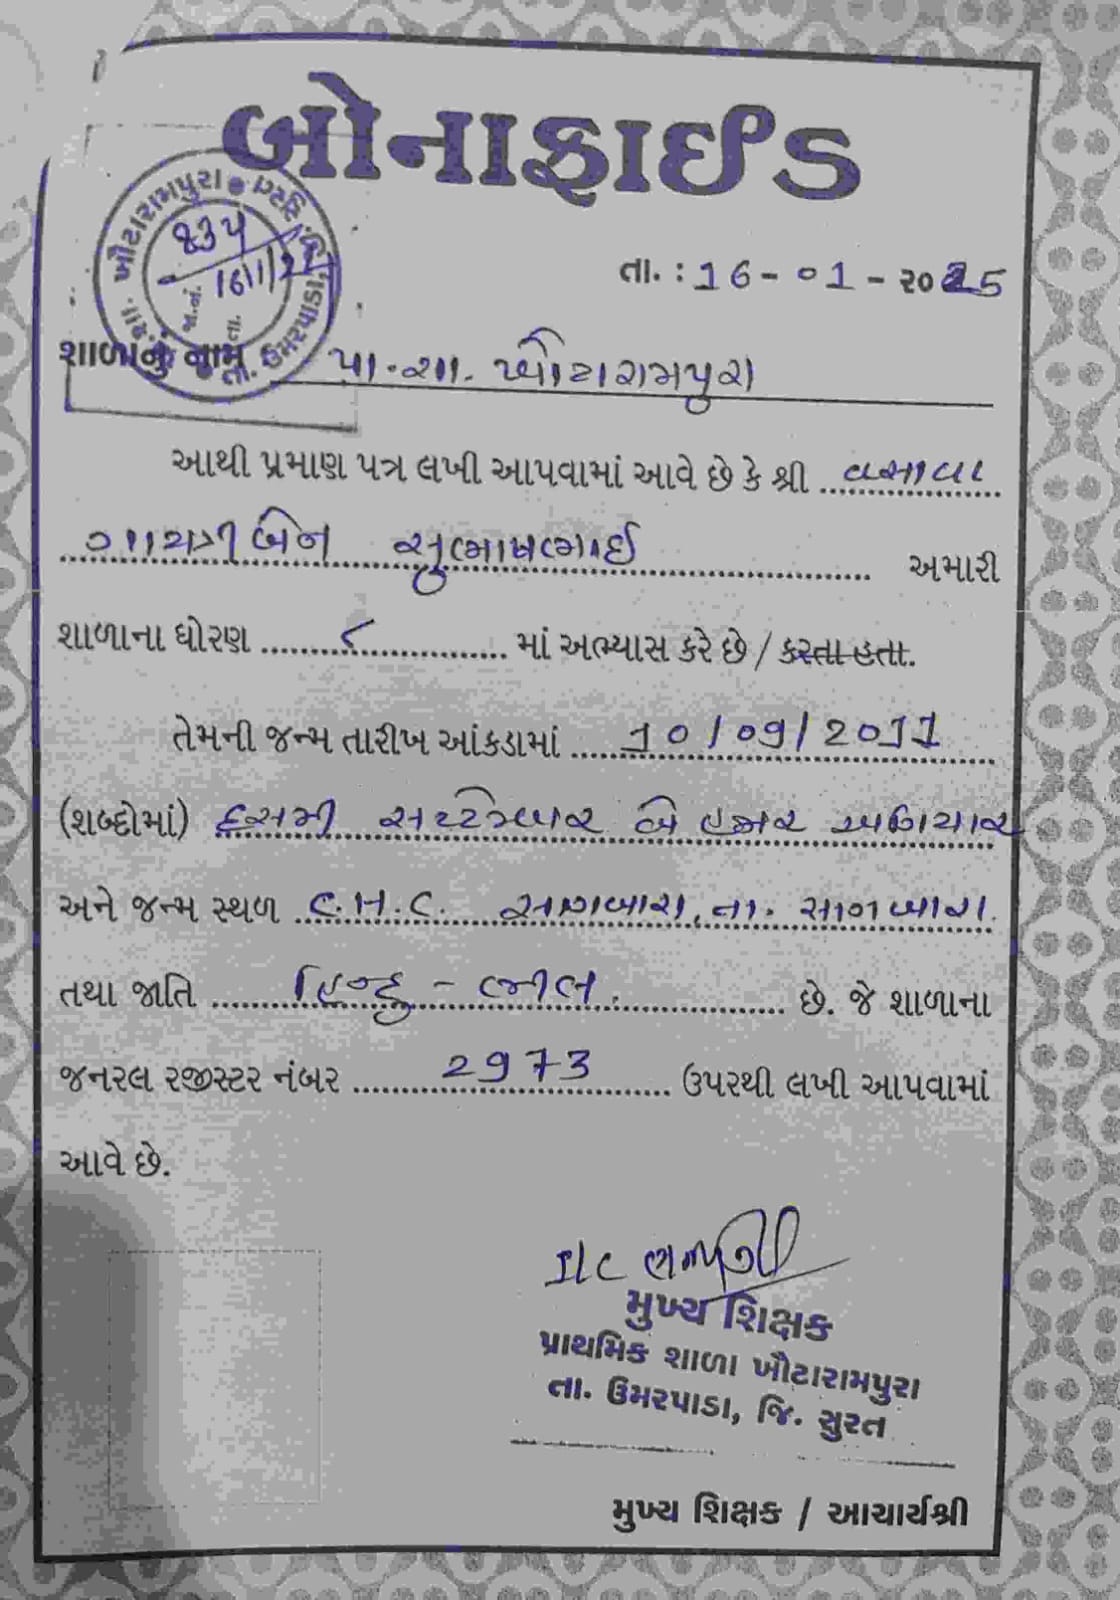 બોનાફાઈડ
પ્રા. શા. ખૌટારામપુરા
તા. ઉમરપાડા, જિ. સુરત
જા.નં. ૪૩૫
તા. 16/1/25
તા. : 16-01-૨૦25
શાળાનું નામ પ્રા.શા. ખૌટારામપુરા
આથી પ્રમાણ પત્ર લખી આપવામાં આવે છે કે શ્રી વસાવા
ગાયત્રીબેન સુભાષભાઈ અમારી
શાળાના ધોરણ ૮ માં અભ્યાસ કરે છે / કરતા હતા.
તેમની જન્મ તારીખ આંકડામાં 10/09/2011
(શબ્દોમાં) દસમી સપ્ટેમ્બર બે હજાર અગિયાર
અને જન્મ સ્થળ C.H.C. સાગબારા, તા. સાગબારા.
તથા જાતિ હિન્દુ - ભીલ. છે. જે શાળાના
જનરલ રજીસ્ટર નંબર 2973 ઉપરથી લખી આપવામાં
આવે છે.
I/C
મુખ્ય શિક્ષક
પ્રાથમિક શાળા ખૌટારામપુરા
તા. ઉમરપાડા, જિ. સુરત
મુખ્ય શિક્ષક / આચાર્યશ્રી